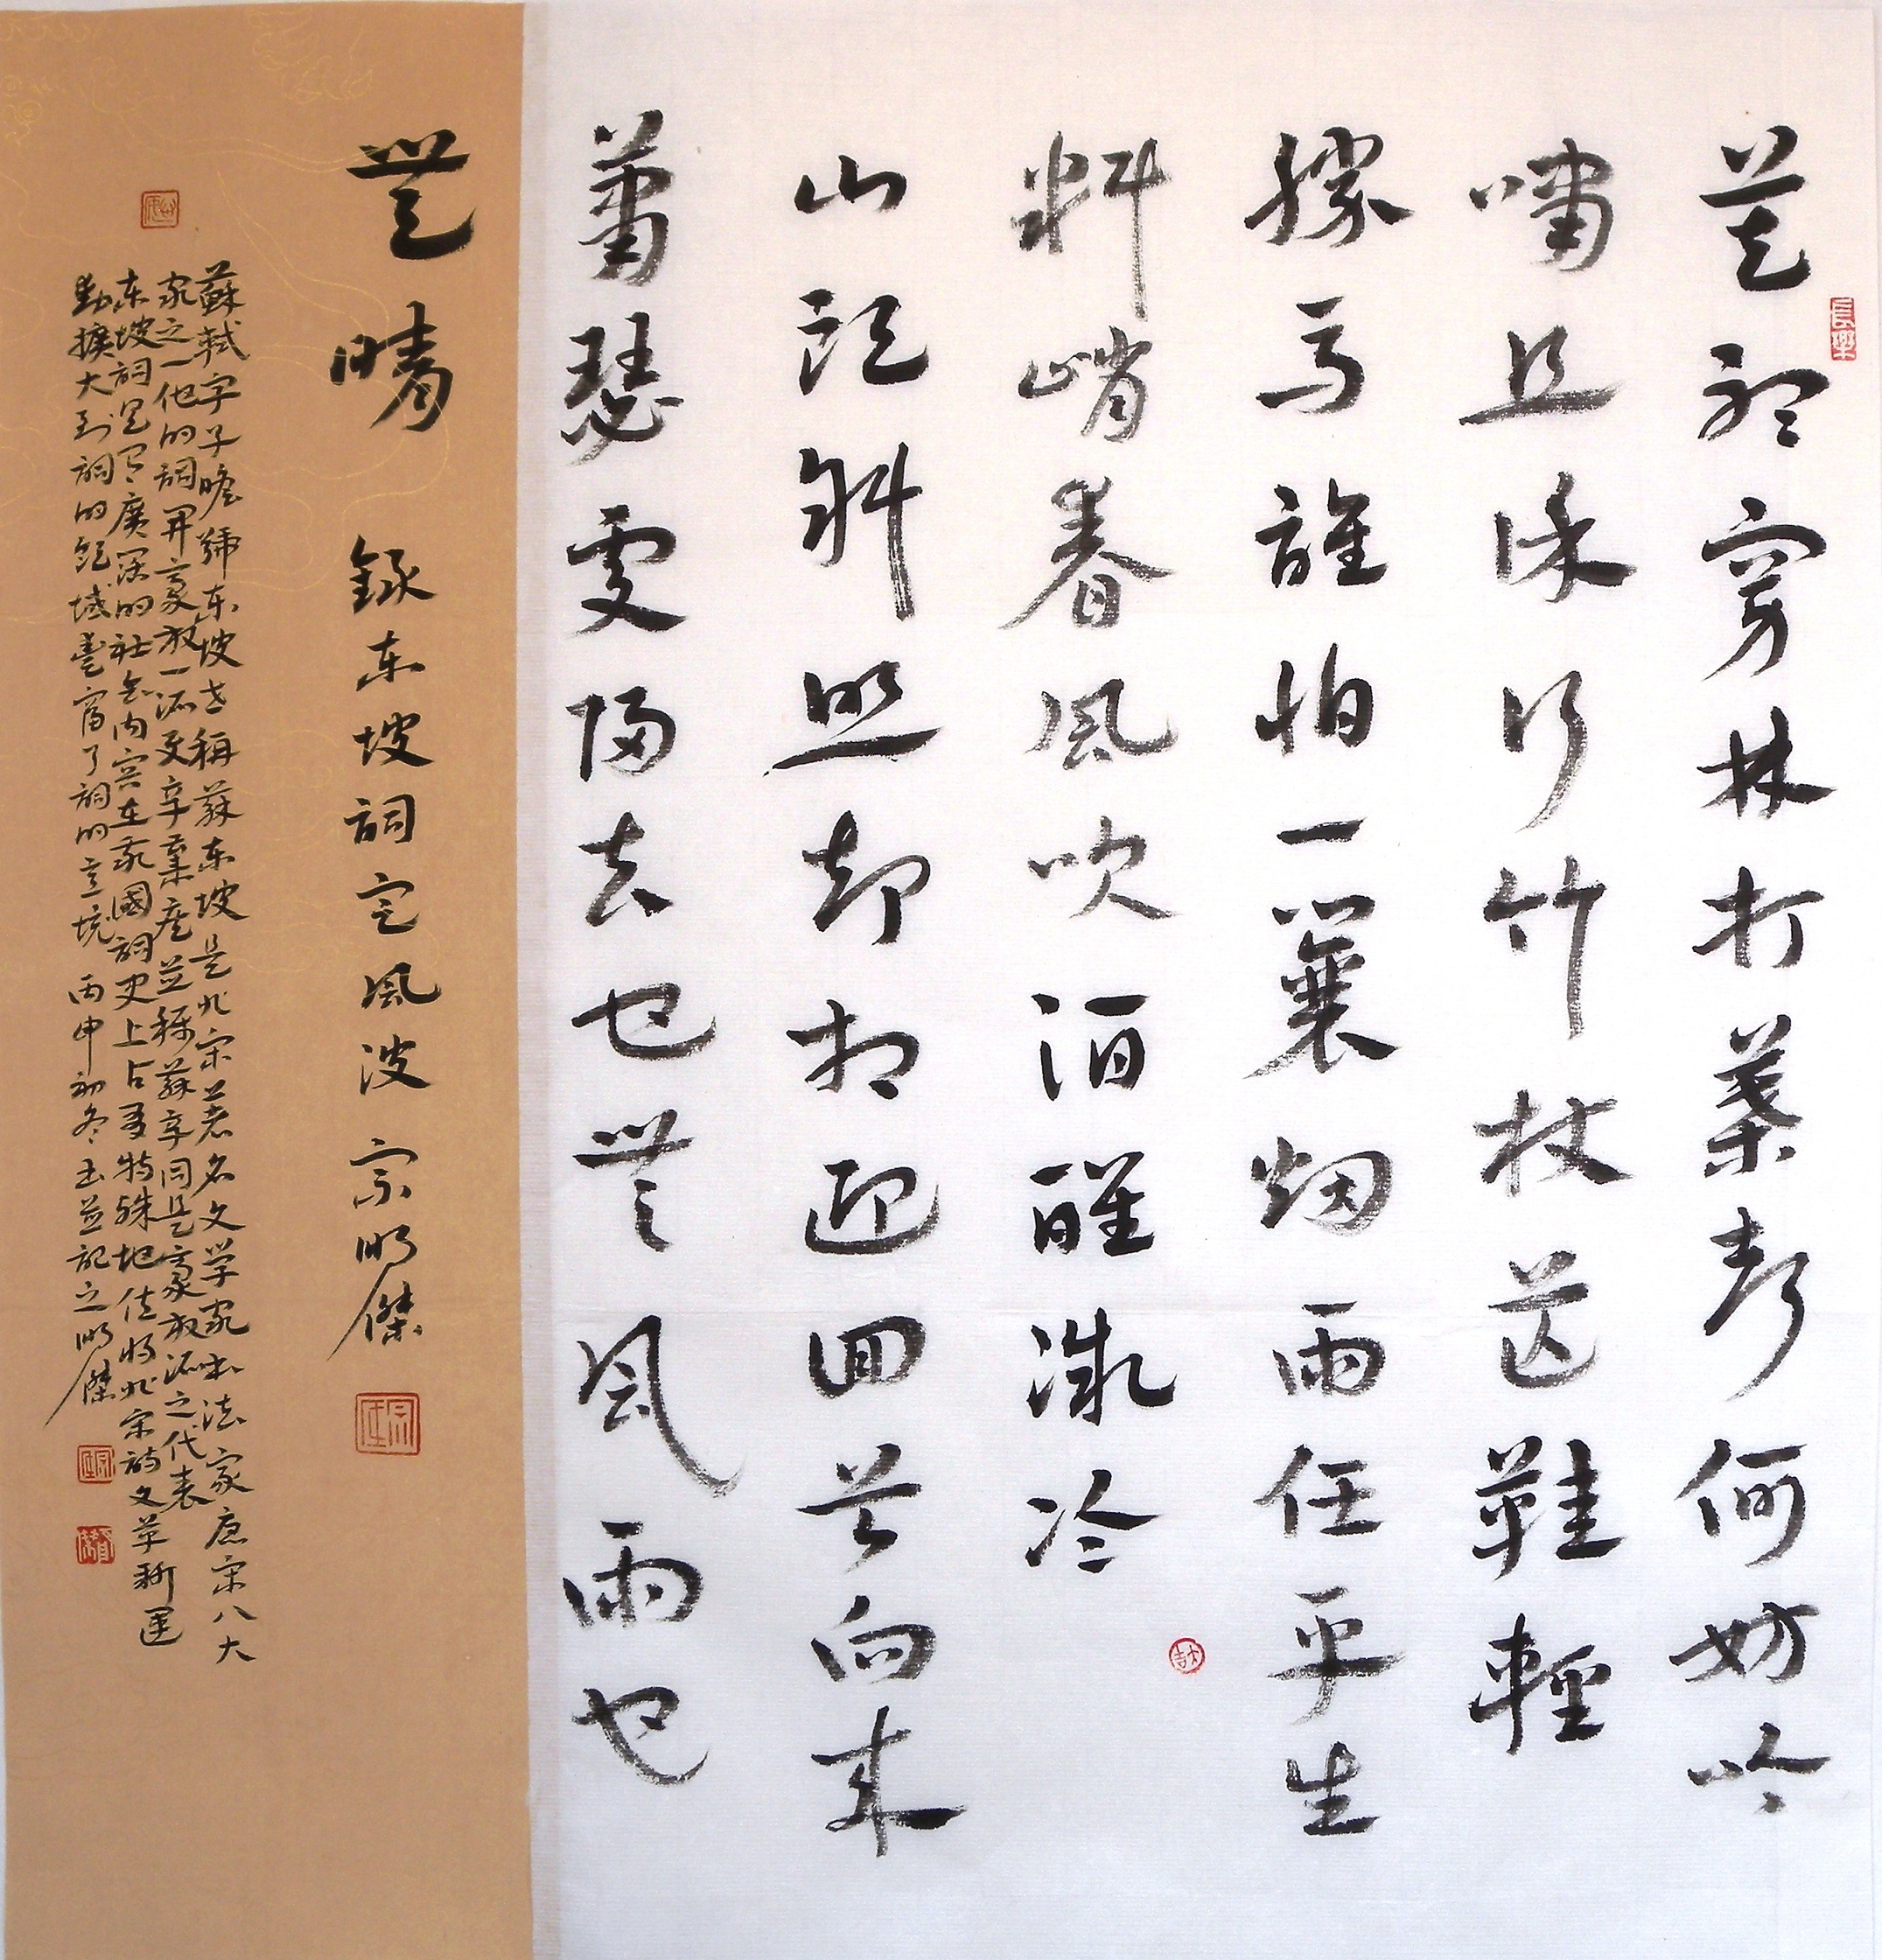 莫聽穿林打葉聲何妨吟
嘯且徐行竹杖芒鞋輕
勝馬誰怕一蓑烟雨任平生
料峭春風吹酒醒微冷
山頭斜照却相迎回首向来
蕭瑟處歸去也無風雨也
無晴 錄东坡詞定風波 宗明傑
蘇軾字子瞻號东坡世稱蘇东坡是北宋著名文学家书法家唐宋八大
家之一他的詞开豪放一派與辛棄疾並称蘇辛同是豪放派之代表
东坡詞具有廣深的社会内容在我國詞史上占有特殊地位将北宋詩文革新運
動擴大到詞的領域豐富了詞的意境 丙申初冬书並記之明傑
長樂
大吉